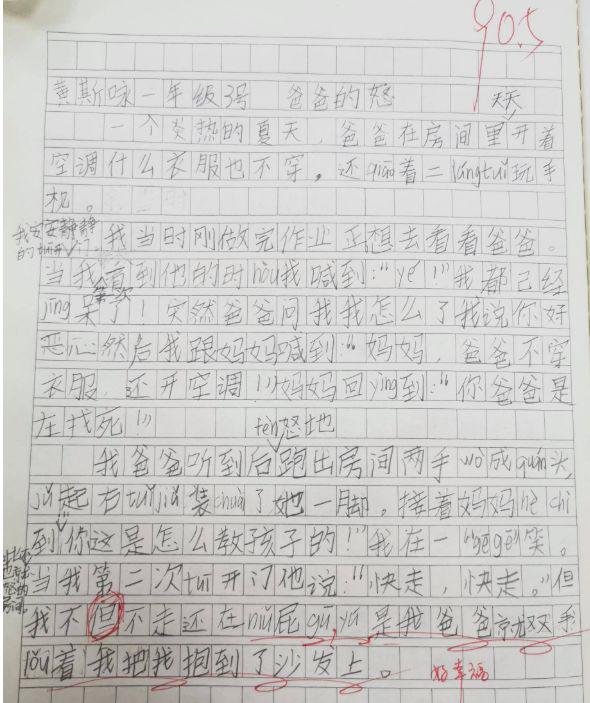 90.5
黄斯咏一年级3号 爸爸的怒
天天
一个炎热的夏天，爸爸在房间里开着
空调什么衣服也不穿，还qiào着二lángtuǐ玩手
机。
我安安静静
的tuī开门
我当时刚做完作业正想去看看爸爸。
当我看到他的时hòu我喊到:“yé!”我都已经
jīng呆了!突然爸爸问我我怎么了我说你好
恶心然后我跟妈妈喊到:“妈妈，爸爸不穿
衣服，还开空调!”妈妈回yìng到:“你爸爸是
在找死!”
fèn怒地
我爸爸听到后跑出房间两手wò成quán头，
jǔ起右tuǐjiù装chuài了她一脚。接着妈妈hè chì
到你这是怎么教孩子的!”我在一 gēgē笑。
当我第二次tuī开门他说:“快走，快走。”但
我不但不走还在niǔ屁gǔ,yú是我爸爸就双手
lǒu着我把我抱到了沙发上。
好幸福